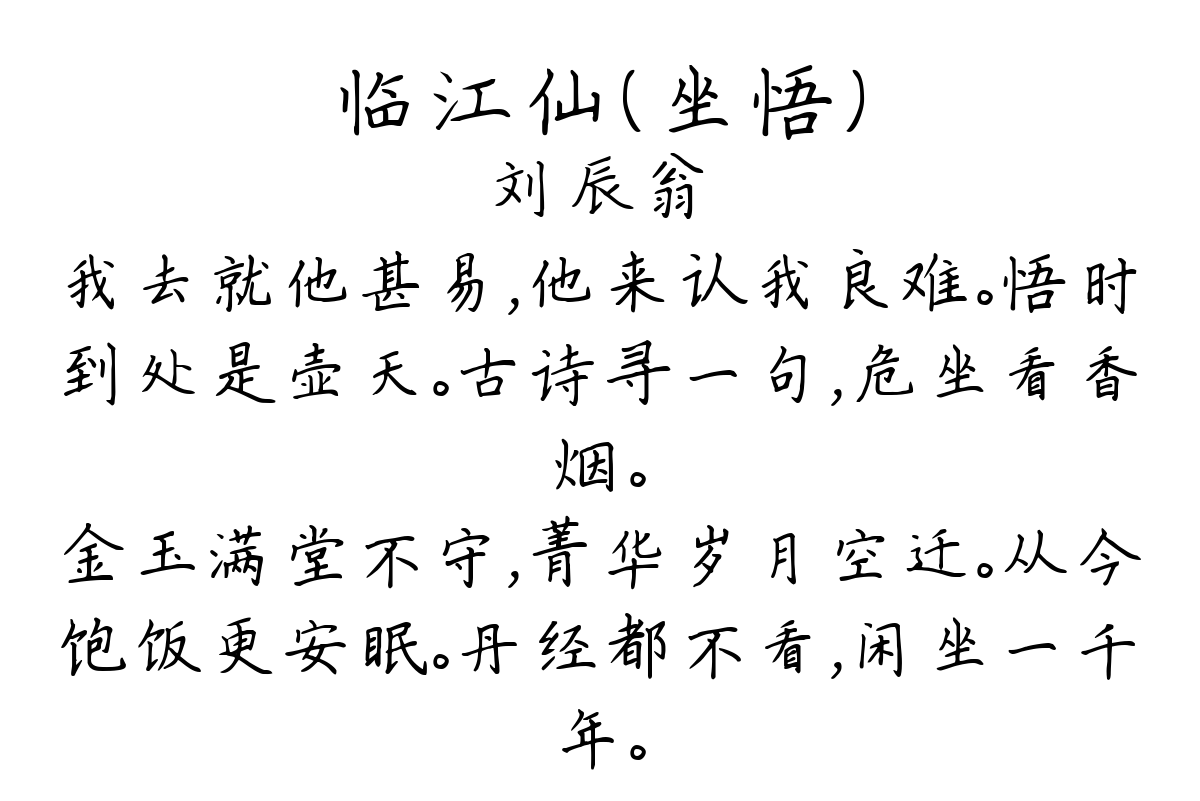 临江仙(坐悟)
刘辰翁
我去就他甚易,他来认我良难。悟时
到处是壶天。古诗寻一句,危坐看香
烟。
金玉满堂不守,菁华岁月空迁。从今
饱饭更安眠。丹经都不看,闲坐一千
年。